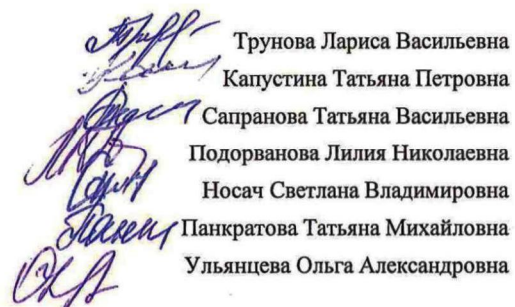 Трунова Лариса Васильевна
Капустина Татьяна Петровна
Сапранова Татьяна Васильевна
Подорванова Лилия Николаевна
Носач Светлана Владимировна
Панкратова Татьяна Михайловна
Ульянцева Ольга Александровна